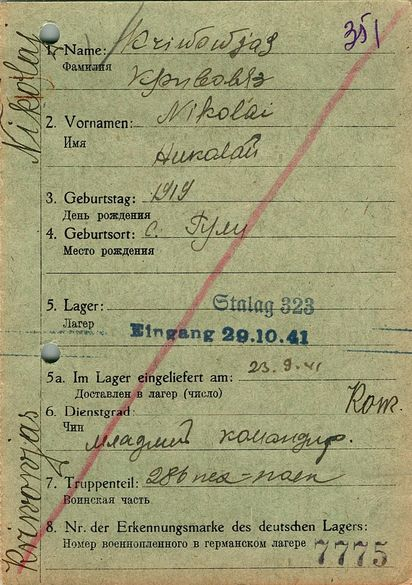 351
1. Name: Kriwowjas
Фамилия
Кривовяз
2. Vornamen: Nikolai
Имя
Николай
3. Geburtstag: 1919
День рождения
4. Geburtsort: с. Гули
Место рождения
5. Lager: Stalag 323
Лагер
Eingang 29.10.41
5a. Im Lager eingeliefert am: 23.9.41
Доставлен в лагер (число)
6. Dienstgrad:
Чин
младший командир.
7. Truppenteil: 286
Воинская часть.
8. Nr. der Erkennungsmarke des deutschen Lagers:
Номер военнопленного в германском лагере 7775
Nikolaj
Kriwowjas